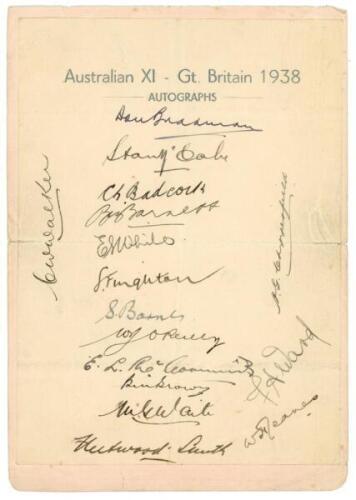 Australian XI - Gt. Britain 1938
AUTOGRAPHS
Don Bradman
Stan McCabe
C. L. Badcock
B. A. Barnett
E S White
J. Fingleton
S. Barnes
W J O'Reilly
E. L. McCormick
Bill Brown
M. G. Waite
Fleetwood-Smith
C W Walker
A. G. Chipperfield
F A Ward
W H Jeanes